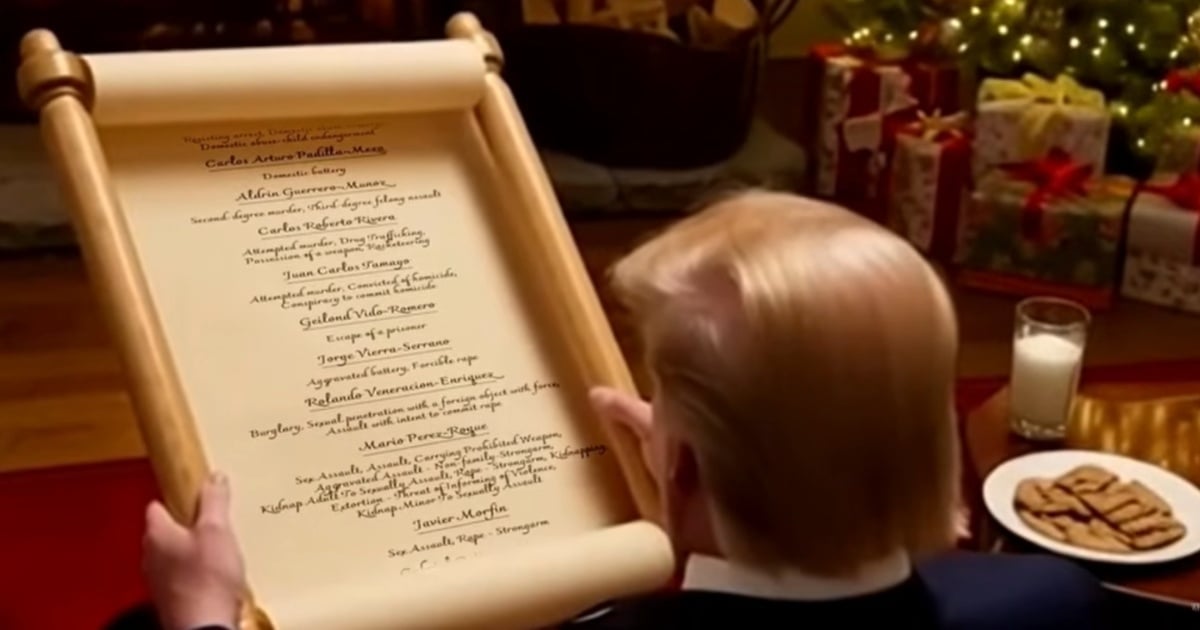 Resisting arrest, Domestic abuse
Domestic abuse-child endangerment
Carlos Arturo Padilla-Meza
Domestic battery
Aldrin Guerrero-Munoz
Second-degree murder, Third-degree felony assault
Carlos Roberto Rivera
Attempted murder, Drug Trafficking,
Possession of a weapon, Racketeering
Juan Carlos Tamayo
Attempted murder, Convicted of homicide,
Conspiracy to commit homicide
Geilond Vido-Romero
Escape of a prisoner
Jorge Vierra-Serrano
Aggravated battery, Forcible rape
Rolando Veneracion-Enriquez
Burglary, Sexual penetration with a foreign object with force,
Assault with intent to commit rape
Mario Perez-Roque
Sex Assault, Assault, Carrying Prohibited Weapon,
Aggravated Assault - Non-family-Strongarm,
Kidnap Adult To Sexually Assault, Rape - Strongarm, Kidnapping,
Extortion - Threat of Informing of Violence,
Kidnap Minor To Sexually Assault
Javier Morfin
Sex Assault, Rape - Strongarm